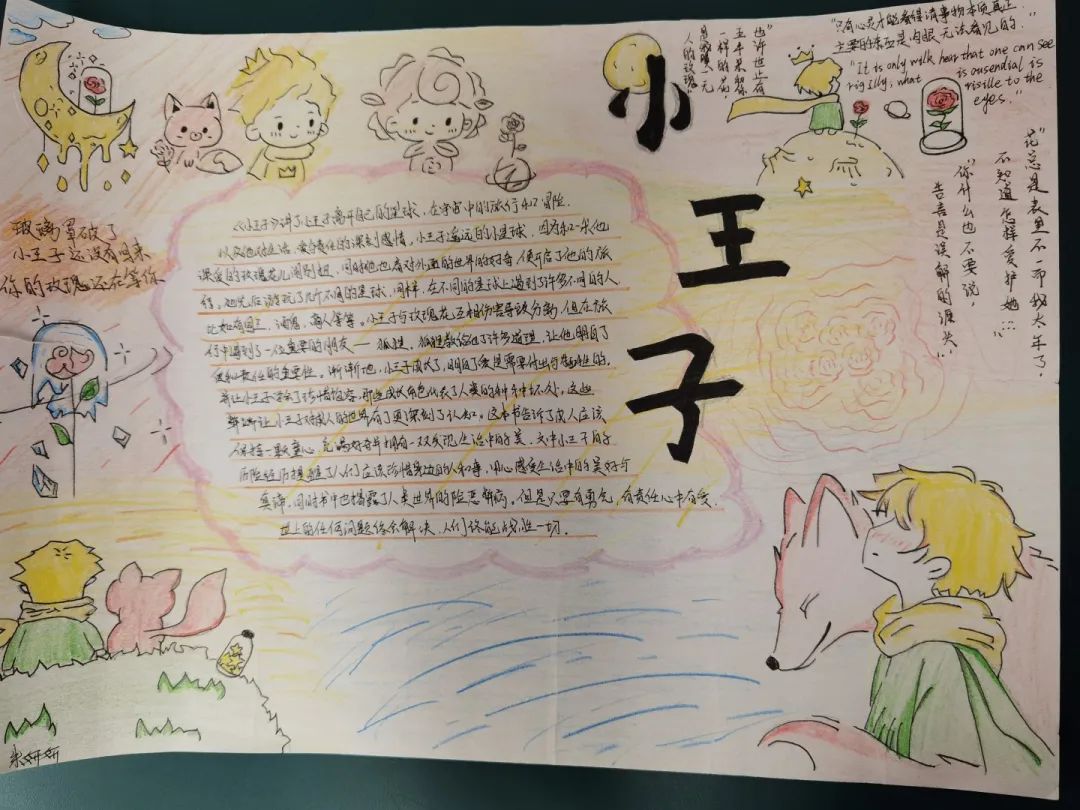 小王子
"只有心灵才能看得清事物本质,真正
主要的东西是肉眼无法看见的."
"It is only wilk hear that one can see
rigilly, what is ousendial is
risille to the
eyes."
也许世上有
五千朵和你
一样的花,
但只有你是
人的玫瑰
"花总是表里不一而我太年了,
不知道怎样爱护她……"
"你什么也不要说,
语言是误解的源头."
玻璃罩破了
小王子还没有回来
你的玫瑰还在等你
《小王子》讲了小王子离开自己的星球,在宇宙中的旅行和冒险.
以及他对生活、爱与责任的深刻感情,小王子遥远的小星球,因为和一朵他
深爱的玫瑰花儿闹别扭,同时他也有对外面的世界的好奇,便开启了他的旅
行。他先后游玩了几个不同的星球,同样,在不同的星球上遇到了许多不同的人,
比如有国王、酒鬼、商人等等。小王子与玫瑰花互相伤害导致分离,但在旅
行中得到了一位重要的朋友——狐狸,狐狸教给他了许多道理,让他明白了
爱和责任的重要性,渐渐地,小王子成长了,明白了爱是需要付出与牺牲的,
并让小王子学会了珍惜包容,那些成人角色代表了人类的种种坏处,这些
让小王子对成人的世界有了更深刻了认知。这本书告诉了成人应该
保持一颗童心,充满好奇并拥有一双发现生活中的美,文中小王子的
历险经历提醒了人们应该珍惜身边的人和事,用心感受生活中的美好与
真谛,同时书中也揭露了人类世界的险恶弊病。但是只要有勇气,有责任心中有爱,
世上的任何问题终会解决,人们终能战胜一切.
朱妍妍